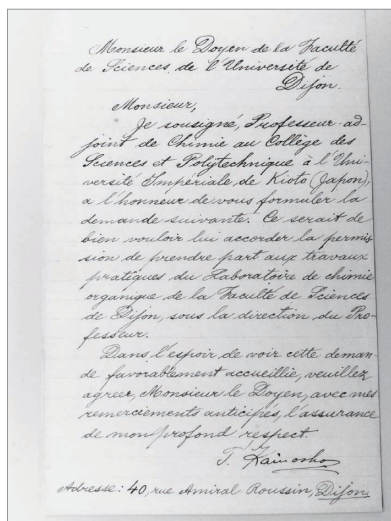 Monsieur le Doyen de la Faculté
de Sciences de l'Université de
Dijon.
Monsieur,
Je sousigné, Professeur-ad-
joint de Chimie au Collège des
Sciences et Polytechnique à l'Uni-
versité Impériale de Kioto (Japon),
a l'honneur de vous formuler la
demande suivante. Ce serait de
bien vouloir lui accorder la permis-
sion de prendre part aux travaux
pratiques du Laboratoire de chimie
organique de la Faculté de Sciences
de Dijon, sous la direction du Pro-
fesseur.
Dans l'espoir de voir cette deman-
de favorablement accueillie, veuillez
agreer, Monsieur le Doyen, avec mes
remerciements anticipés, l'assurance
de mon profond respect.
T.
Adresse: 40, rue Amiral Roussin, Dijon